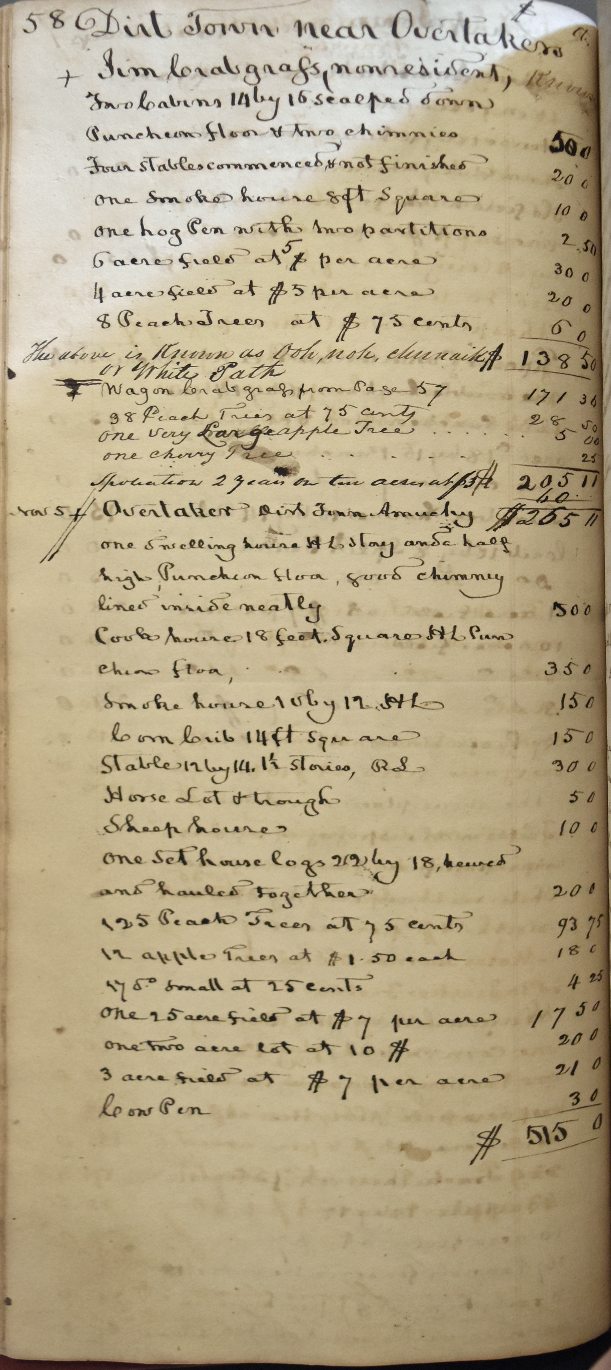 58 Dirt Town near Overtakers
+ Jim Crabgrass, nonresident, Known
Two Cabins 14 by 16 scalped down
Puncheon floor & two chimnies 50 0
Four stables commenced & not finished 20 0
one smoke house 8ft Square 10 0
one hog Pen with two partitions 2.50
6 acre field at 5 $ per acre 30 0
4 acre field at $5 per acre 20 0
8 Peach Trees at $ 75 cents 6 0
The above is Known as Ooh, noh, chunaik $ 138 50
or White Path
Wagon Crabgrass from Page 57 171 36
38 Peach Trees at 75 cents 28 50
one very Large apple Tree 5 00
one cherry Tree 25
Spoliation 2 years on ten acres at $ 205 11
60.
Nov 5 Overtaker Dirt Town Amuchy $ 265 11
one dwelling house HL story and a half
high, Puncheon floor, good chimney
lined inside neatly 50 0
Cook house 18 feet. Square HL Pun
cheon floor, 35 0
Smoke house 10 by 12 HL 15 0
Corn Crib 14ft square 15 0
Stable 12 by 14. 1½ stories, RL 30 0
Horse Lot & trough 5 0
Sheep house 10 0
One Set house logs 22 by 18, hewed
and hauled together 20 0
125 Peach Trees at 75 cents 93 75
12 apple Trees at $1.50 each 18 0
17 do small at 25 cents 4 25
One 25 acre field at $7 per acre 175 0
one two acre lot at 10 $ 20 0
3 acre field at $7 per acre 21 0
Cow Pen 3 0
$ 515 0